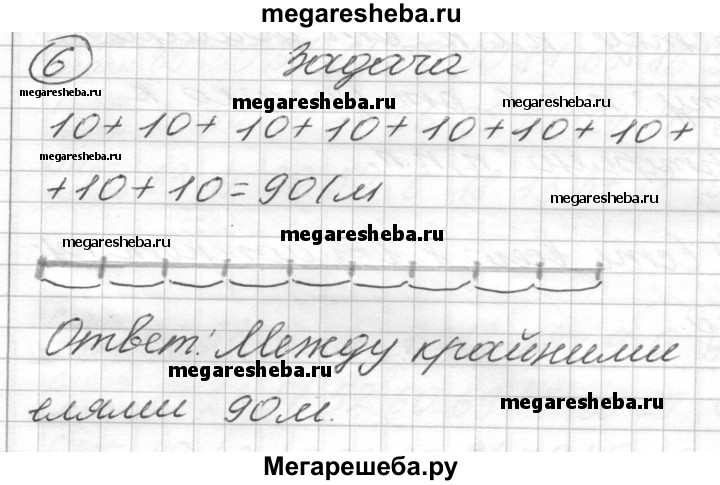 megaresheba.ru
6 Задача
megaresheba.ru
megaresheba.ru
megaresheba.ru
10+ 10+ 10+10+ 10+10+ 10+
megaresheba.ru
+10+ 10 = 90(м
megaresheba.ru
megaresheba.ru
megaresheba.ru
Ответ: Между крайними
megaresheba.ru
елями 90м.
megaresheba.ru
Мегарешеба.ру